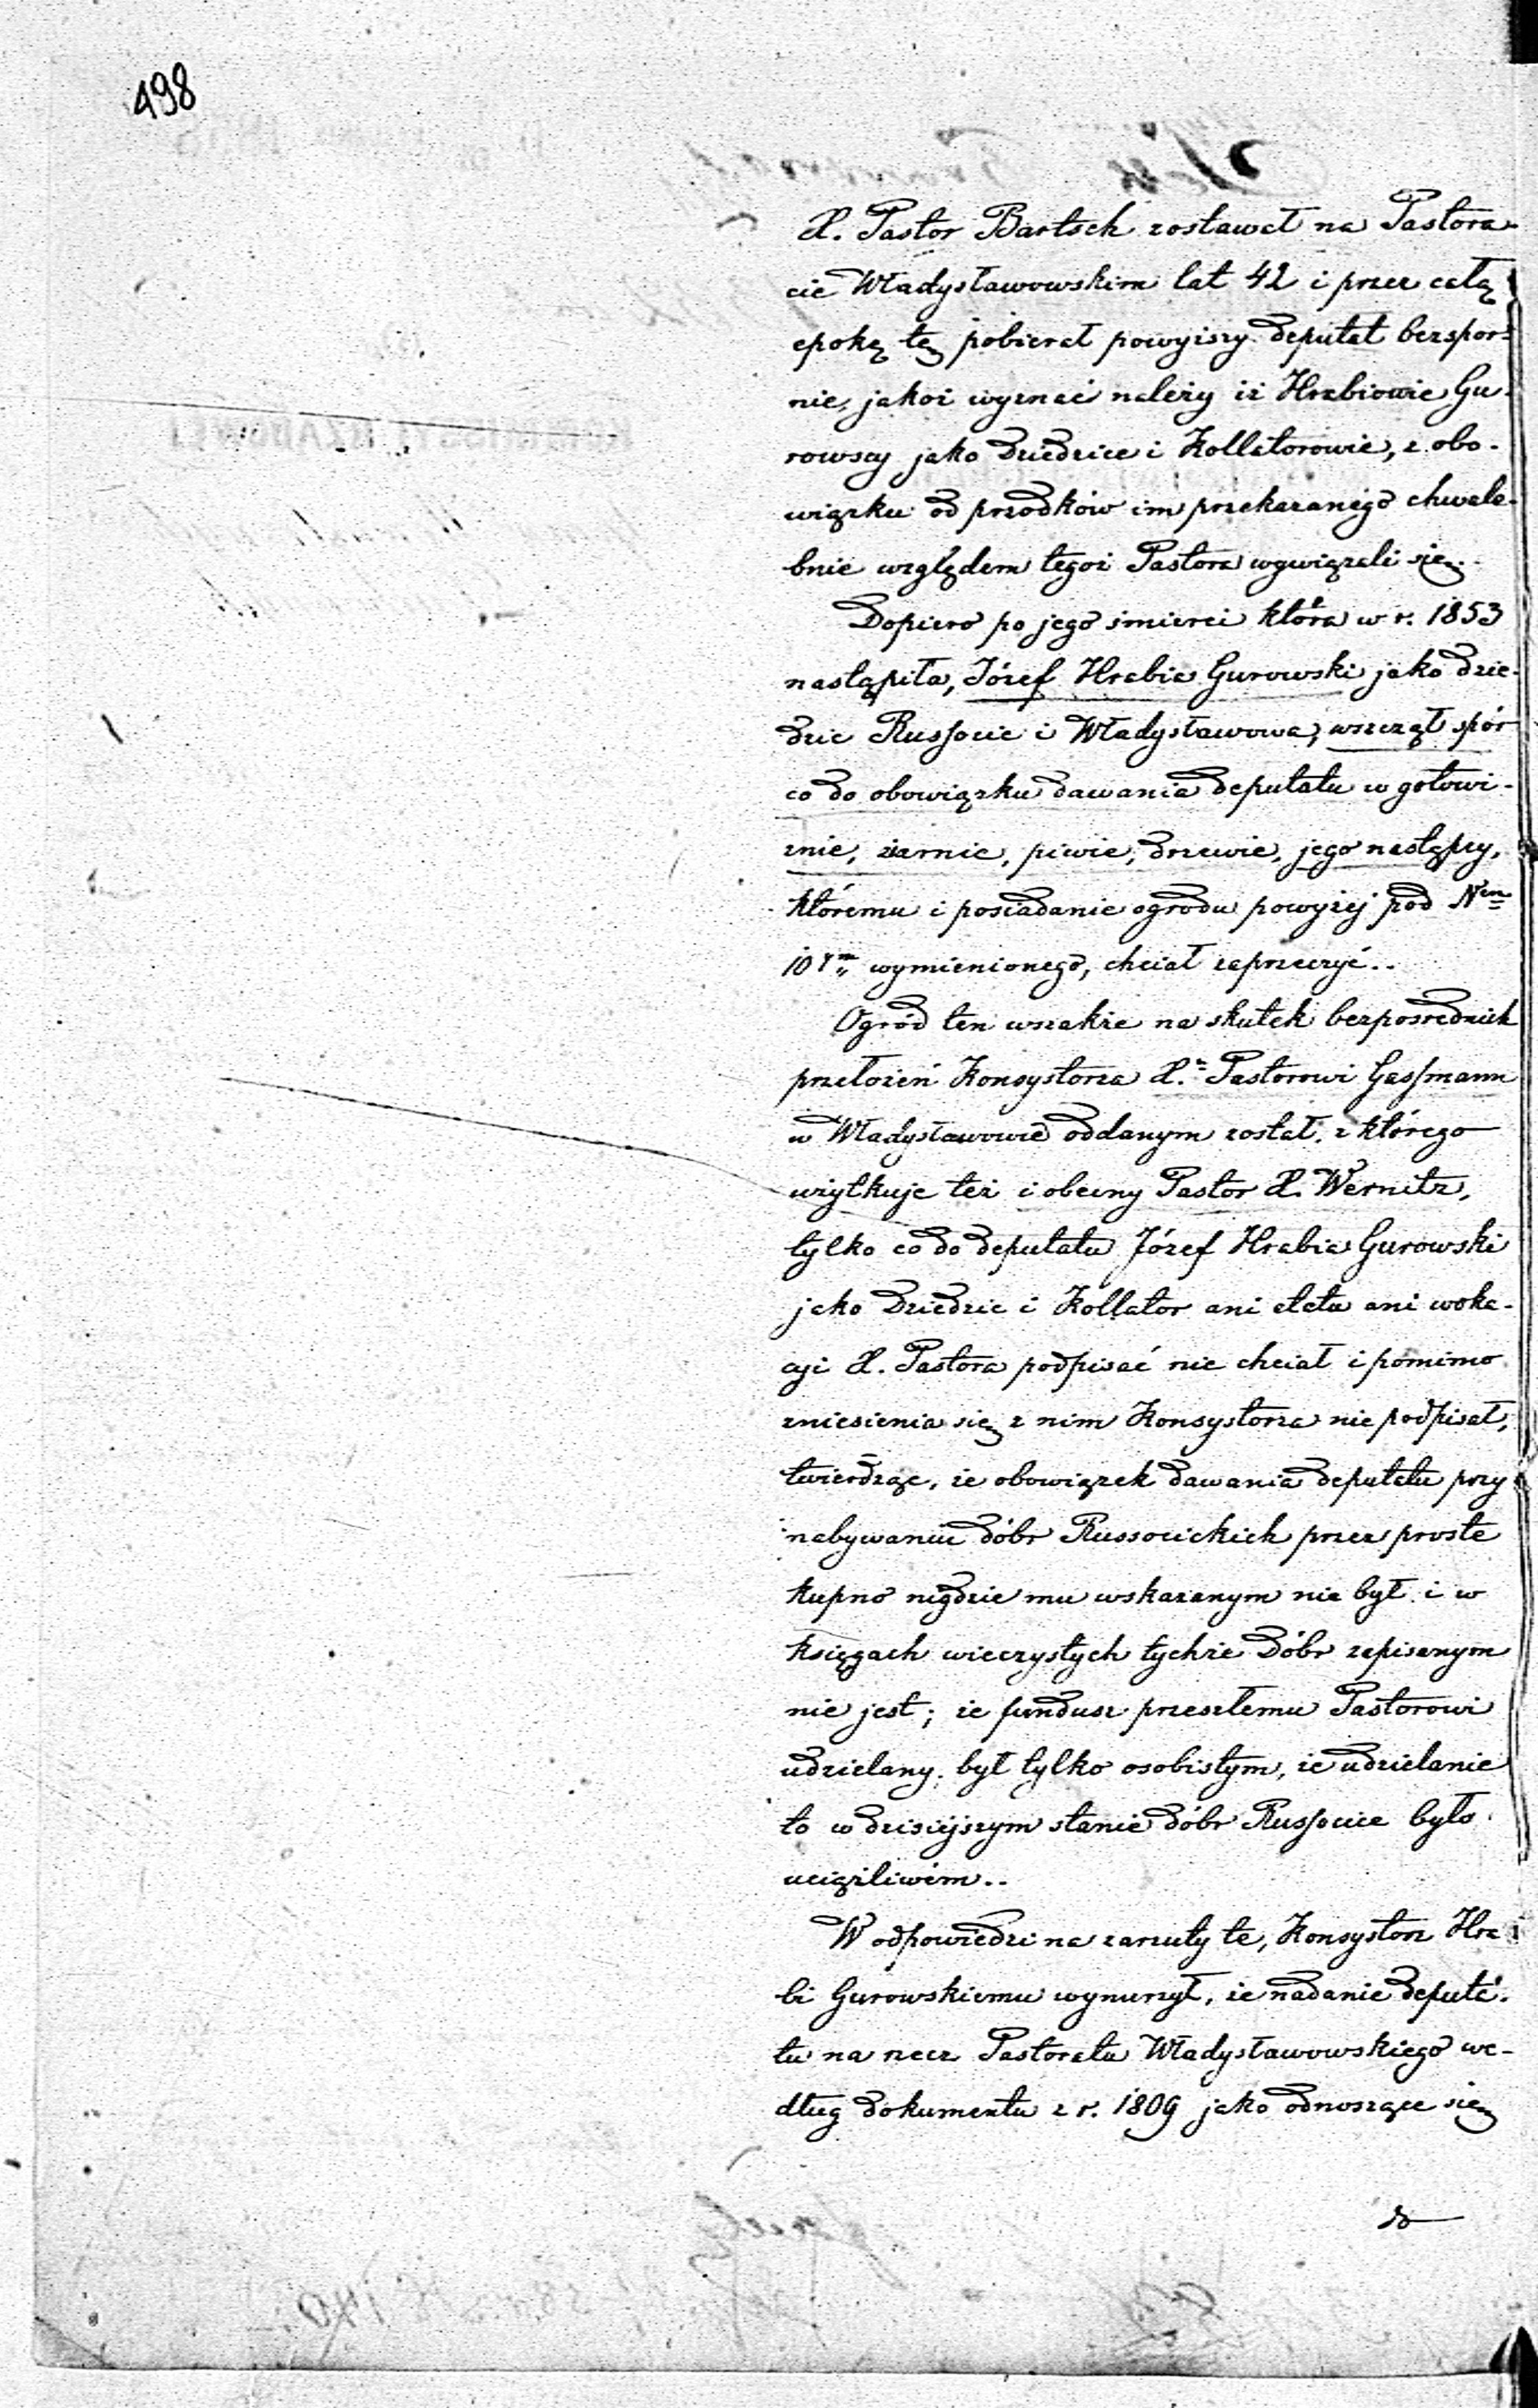 498
X. Pastor Bartsch zostawał na Pastora-
cie Władysławowskim lat 42 i przez całą
epokę tę pobierał powyższy deputat bezspor-
nie, jakoż wyznać należy iż Hrabiowie Gu-
rowscy jako Dziedzice i Kollatorowie, z obo-
wiązku od przodków im przekazanego chwale-
bnie względem tegoż Pastora wywiązali się.
Dopiero po jego śmierci która w r. 1853
nastąpiła, Józef Hrabia Gurowski jako dzie-
dzic Russocic i Władysławowa, wszczął spór
co do obowiązku dawania deputatu w gotowi-
znie, ziarnie, piwie, drzewie, jego następcy,
któremu i posiadanie ogrodu powyżej pod Nem
10ym wymienionego, chciał zaprzeczyć.
Ogród ten wszakże na skutek bezpośrednich
przełożeń Konsystorza X. Pastorowi Gassmann
w Władysławowie oddanym został, z którego
użytkuje też i obecny Pastor X. Wernitz,
tylko co do deputatu Józef Hrabia Gurowski
jako Dziedzic i Kollator ani etatu ani woka-
cyi X. Pastora podpisać nie chciał i pomimo
zniesienia się z nim Konsystorza nie podpisał,
twierdząc, że obowiązek dawania deputatu przy
nabywaniu dóbr Russocickich przez proste
kupno nigdzie mu wskazanym nie był i w
księgach wieczystych tychże Dóbr zapisanym
nie jest; że fundusz przeszłemu Pastorowi
udzielany, był tylko osobistym, że udzielanie
to w dzisiejszym stanie dóbr Russocice było
uciążliwém.
W odpowiedzi na zarzuty te, Konsystorz Hra
bi Gurowskiemu wynurzył, że nadanie deputa-
tu na rzecz Pastoratu Władysławowskiego we-
dług dokumentu z r. 1809 jako odnoszące się